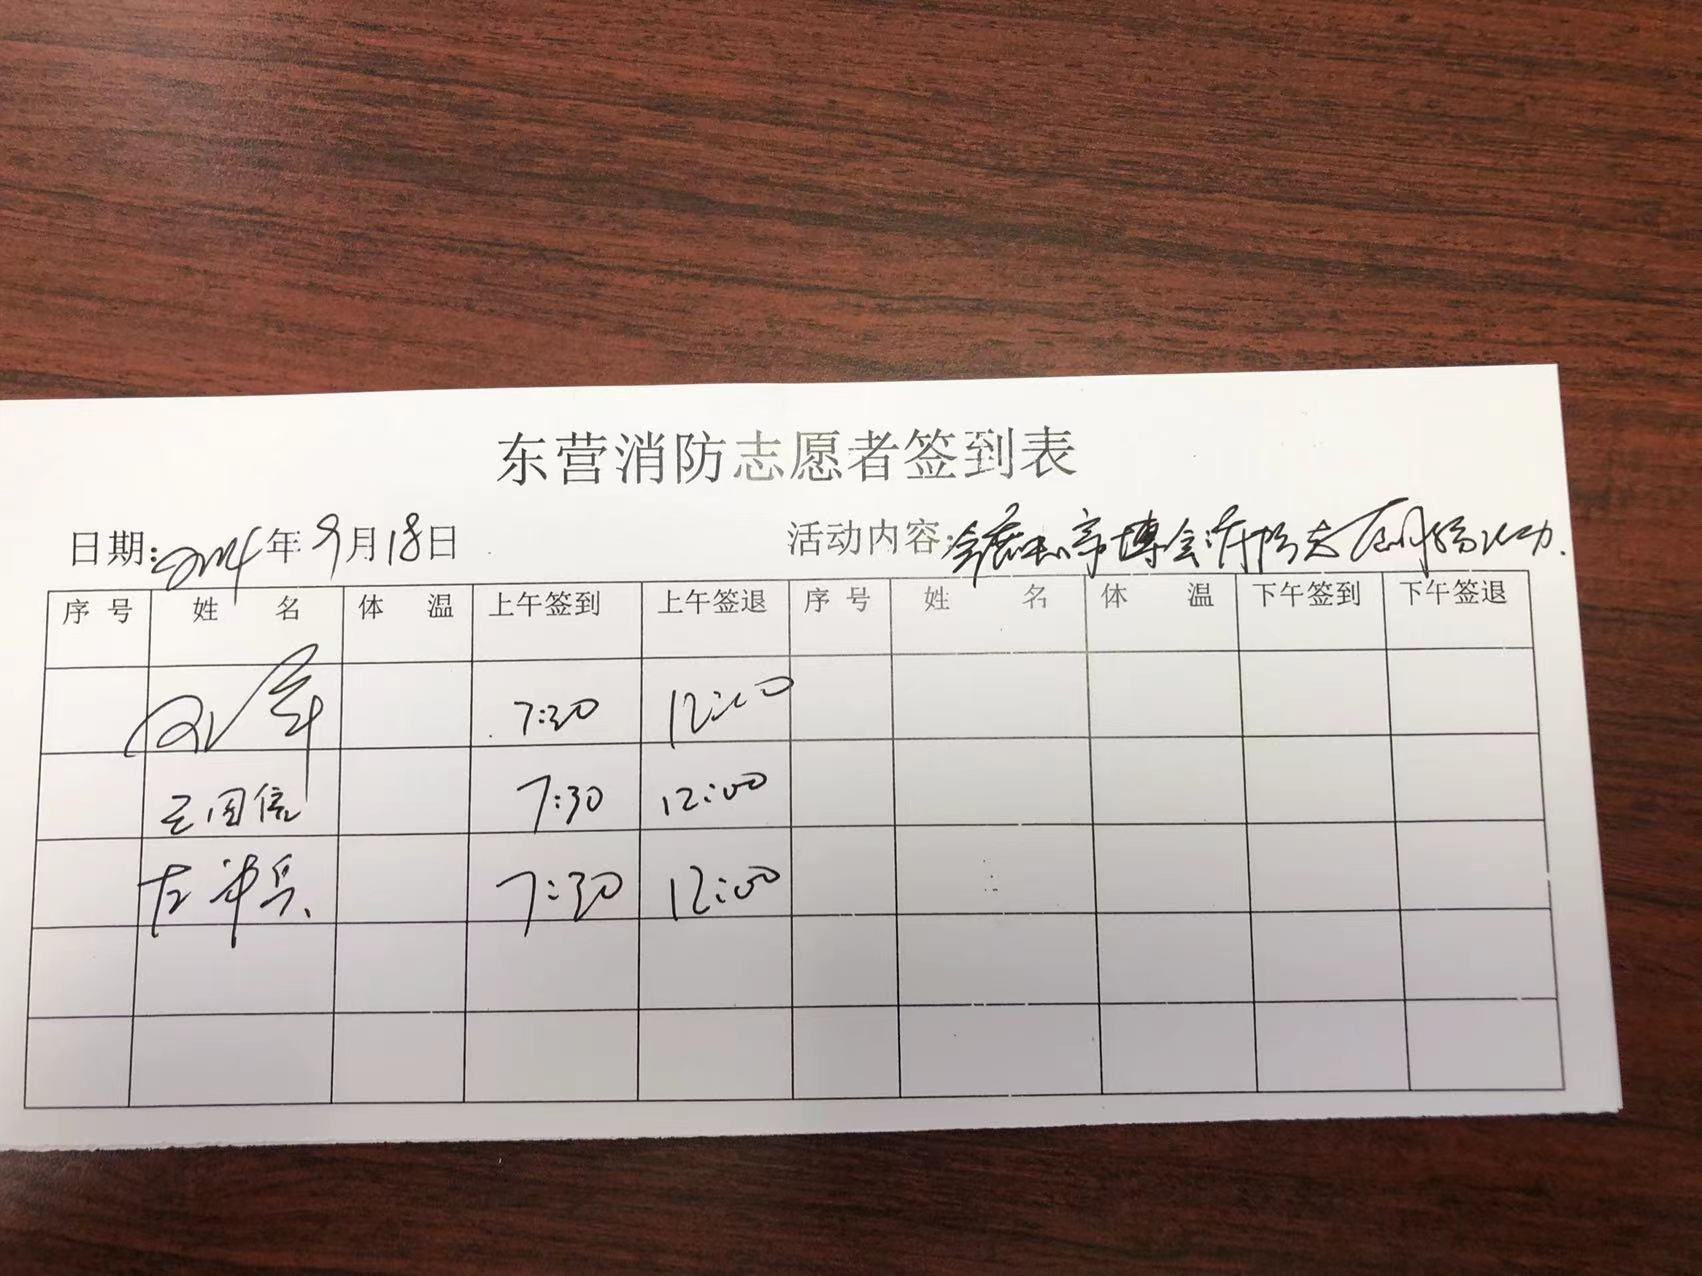 东营消防志愿者签到表
日期: 2024年9月18日 活动内容: 会展中心 博会消防志愿 活动.
序号 姓名 体温 上午签到 上午签退 序号 姓名 体温 下午签到 下午签退
7:30 12:00
王国信 7:30 12:00
7:30 12:00